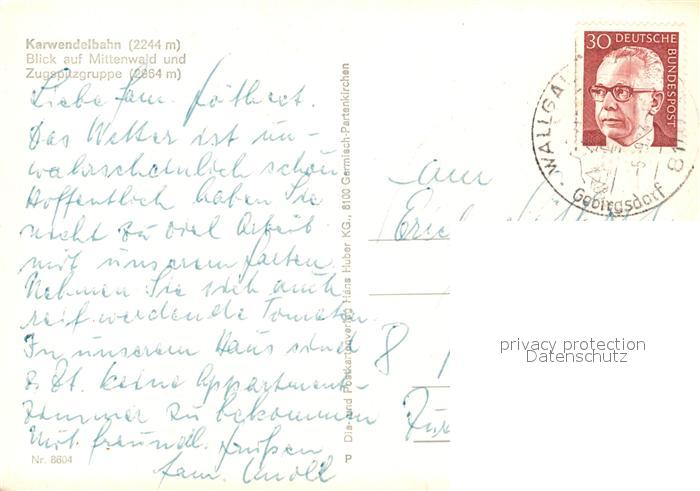 Karwendelbahn (2244 m)
Blick auf Mittenwald und
Zugspitzgruppe (2964 m)
Liebe Fam.
Das Wetter ist un-
wahrscheinlich schön
Hoffentlich haben Sie
nicht zu viel Arbeit
mit unserem Garten.
Nehmen Sie sich auch
reif werdende Tomaten.
In unserem Haus sind
z. Zt. keine Appartement-
zimmer zu bekommen
Mit freundl. Grüßen
Fam. Knoll
Nr. 8604
P
Dia- und Postkartenverlag Hans Huber KG., 8100 Garmisch-Partenkirchen
30 DEUTSCHE
BUNDESPOST
WALLGAU
Gebirgsdorf
An
8
privacy protection
Datenschutz